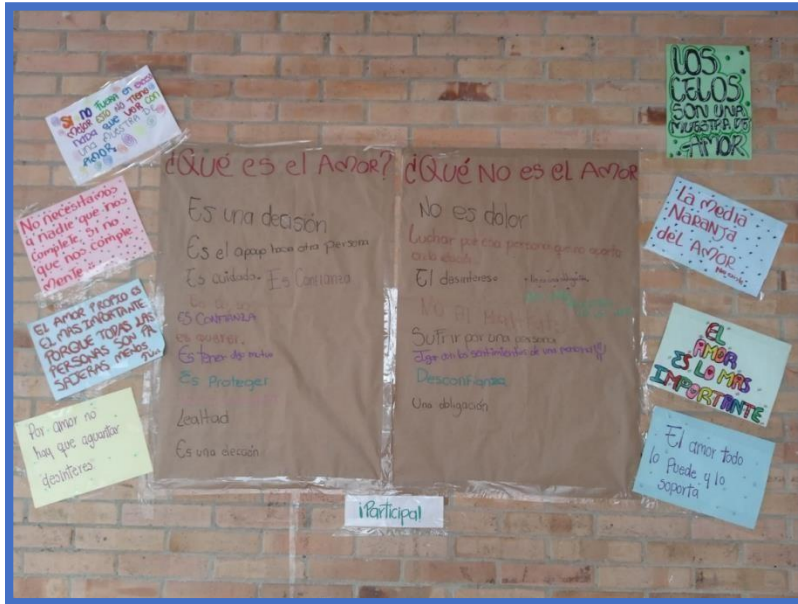 SI NO FUERA EN EXCESO
MEJOR ESO NO TIENE
NADA QUE VER CON
UNA MUESTRA DE
AMOR
No necesitamos
a nadie que nos
complete, si no
que nos comple
mente
EL AMOR PROPIO ES
EL MAS IMPORTANTE
PORQUE TODAS LAS
PERSONAS SON PA
SAJERAS MENOS
TU
Por amor no
hay que aguantar
desinteres
¿Qué es el AMOR?
Es una decisión
Es el apoyo hacia otra persona
Es cuidado. Es Confianza
ES CONFIANZA
es querer.
Es tener dgo mutuo
Es Proteger
Lealtad
Es una decisión
¿Qué No es el AMOR
No es dolor
Luchar por esa persona que no aporta
El desinteres
No es
Sufrir por una persona
los sentimientos de una persona
Desconfianza
Una obligación
¡Participa!
LOS
CELOS
SON UNA
MUESTRA DE
AMOR
La media
NARANJA
del AMOR
EL
AMOR
ES LO MAS
IMPORTANTE
El amor todo
lo Puede y lo
soporta